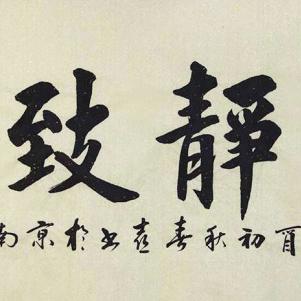 靜致
初秋春書於京南